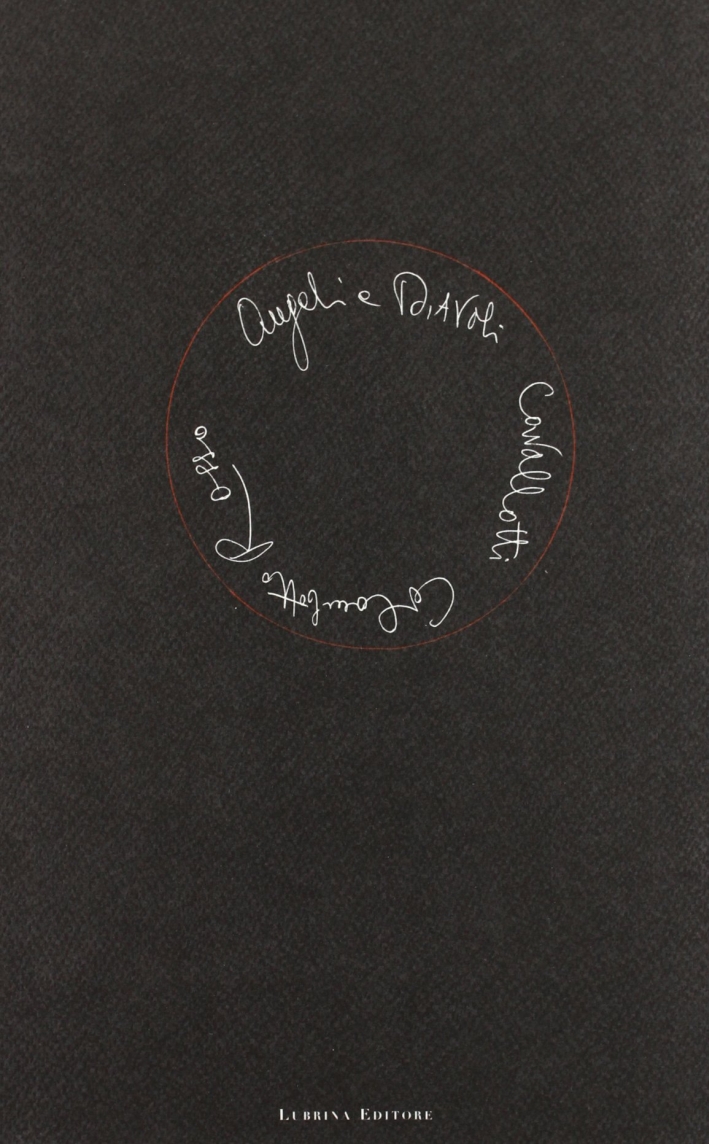 Angeli e DIAVoli
Cavallotti
Colombotto
Rosso
LUBRINA EDITORE